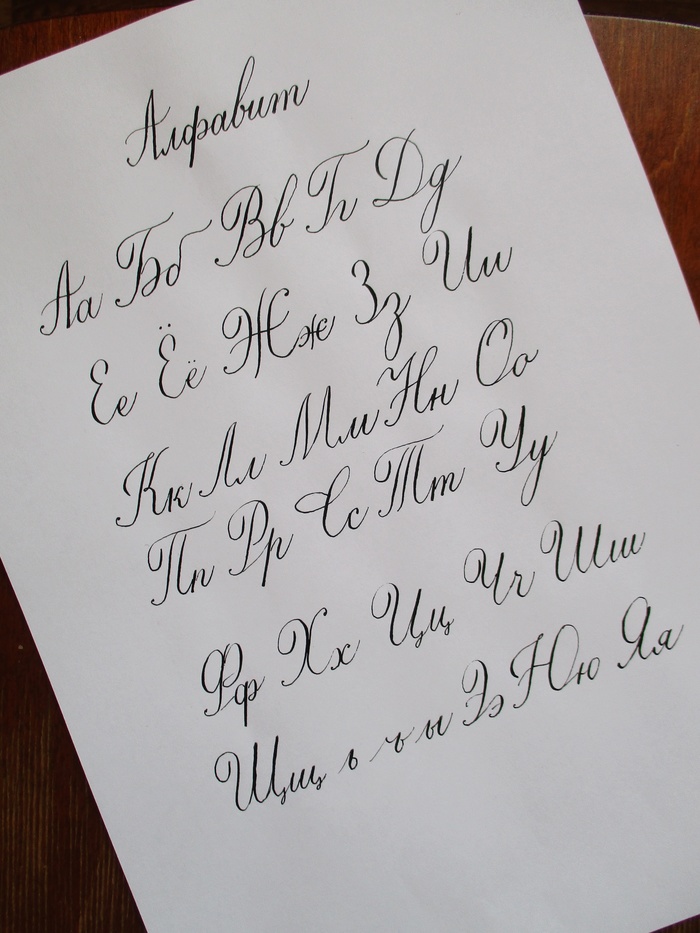 Алфавит
Аа Бб Вв Гг Дд
Ее Ёё Жж Зз Ии
Кк Лл Мм Нн Оо
Пп Рр Сс Тт Уу
Фф Хх Цц Чч Шш
Щщ ь ъ ы Ээ Юю Яя